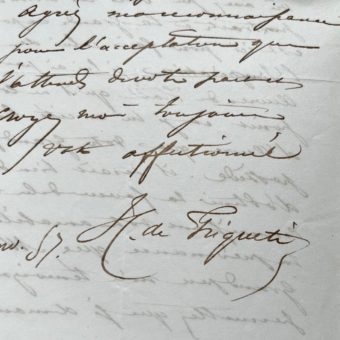 Agréez ma reconnaissance
pour l'acceptation que
j'attends de votre part et
croyez moi toujours
votre affectionné
H. de Triqueti
nov. 57.